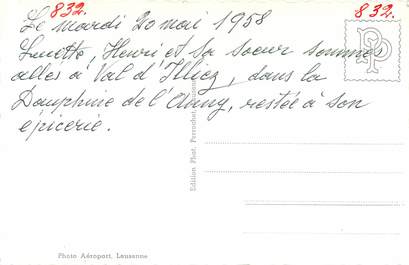 832.
832.
Le mardi 20 mai 1958
Lucette, Henri et sa soeur sommes
allés à Val d'Illiez, dans la
Dauphine de l'Anny, restée à son
épicerie.
Edition Phot. Perrochet, Lausanne
Photo Aéroport, Lausanne